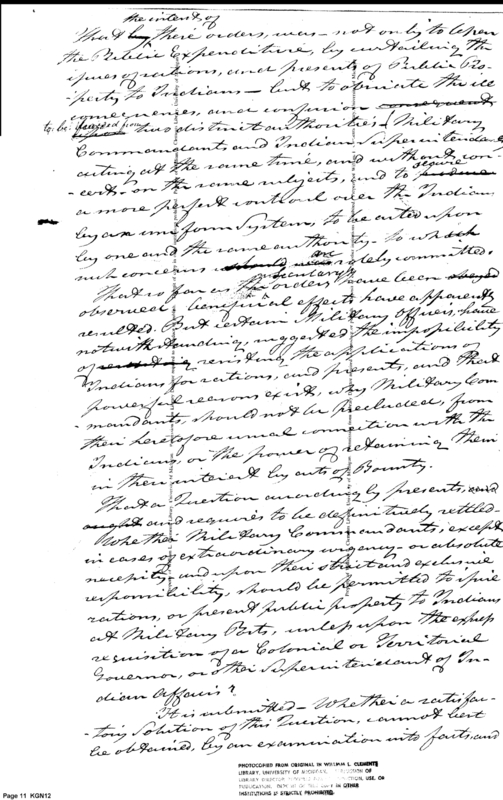 the intent of
That by these orders, was - not only to lessen
the Public Expenditure, by curtailing the
issues of rations, and presents of Public Pro-
-perty to Indians - but to obviate the ill
consequences, and confusion consequent
to be dreaded from two distinct authorities (Military
Commandants, and Indian Superintendents
acting at the same time, and without con-
-cert, on the same subjects, and to produce secure
a more perfect control over the Indians,
by an uniform System, to be acted upon
by one and the same authority - to which
such concerns should were are solely committed.
That so far as the orders have been obeyed
observed, beneficial effects have apparently
resulted. But certain Military Officers, have
notwithstanding, suggested the impossibility
of resisting the applications of
Indians for rations, and presents, and that
powerful reasons exist, why Military Com
-mandants, should not be precluded, from
their heretofore usual connection with the
Indians, or the power of retaining them
in their interest by acts of Bounty.
That a Question accordingly presents, and
ought and requires to be definitively settled -
Whether Military Commandants, except
in cases of extraordinary urgency - or absolute
necessity - and upon their strict and exclusive
responsibility, should be permitted to issue
rations, or present public property to Indians
at Military Posts, unless upon the express
requisition of a Colonial or Territorial
Governor, or other Superintendant of In-
dian Affairs?
It is submitted - Whether a satisfac-
-tory Solution of this Question, cannot best
be obtained, by an examination into facts, and
PHOTOCOPIED FROM ORIGINAL IN WILLIAM L. CLEMENTS
LIBRARY, UNIVERSITY OF MICHIGAN.
INSTITUTIONS IS STRICTLY PROHIBITED.
Page 11 KGN12